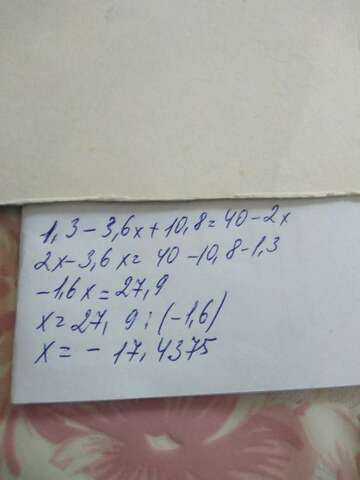 1,3-3,6x+10,8=40-2x
2x-3,6x=40-10,8-1,3
-1,6x=27,9
x=27,9:(-1,6)
x=-17,4375